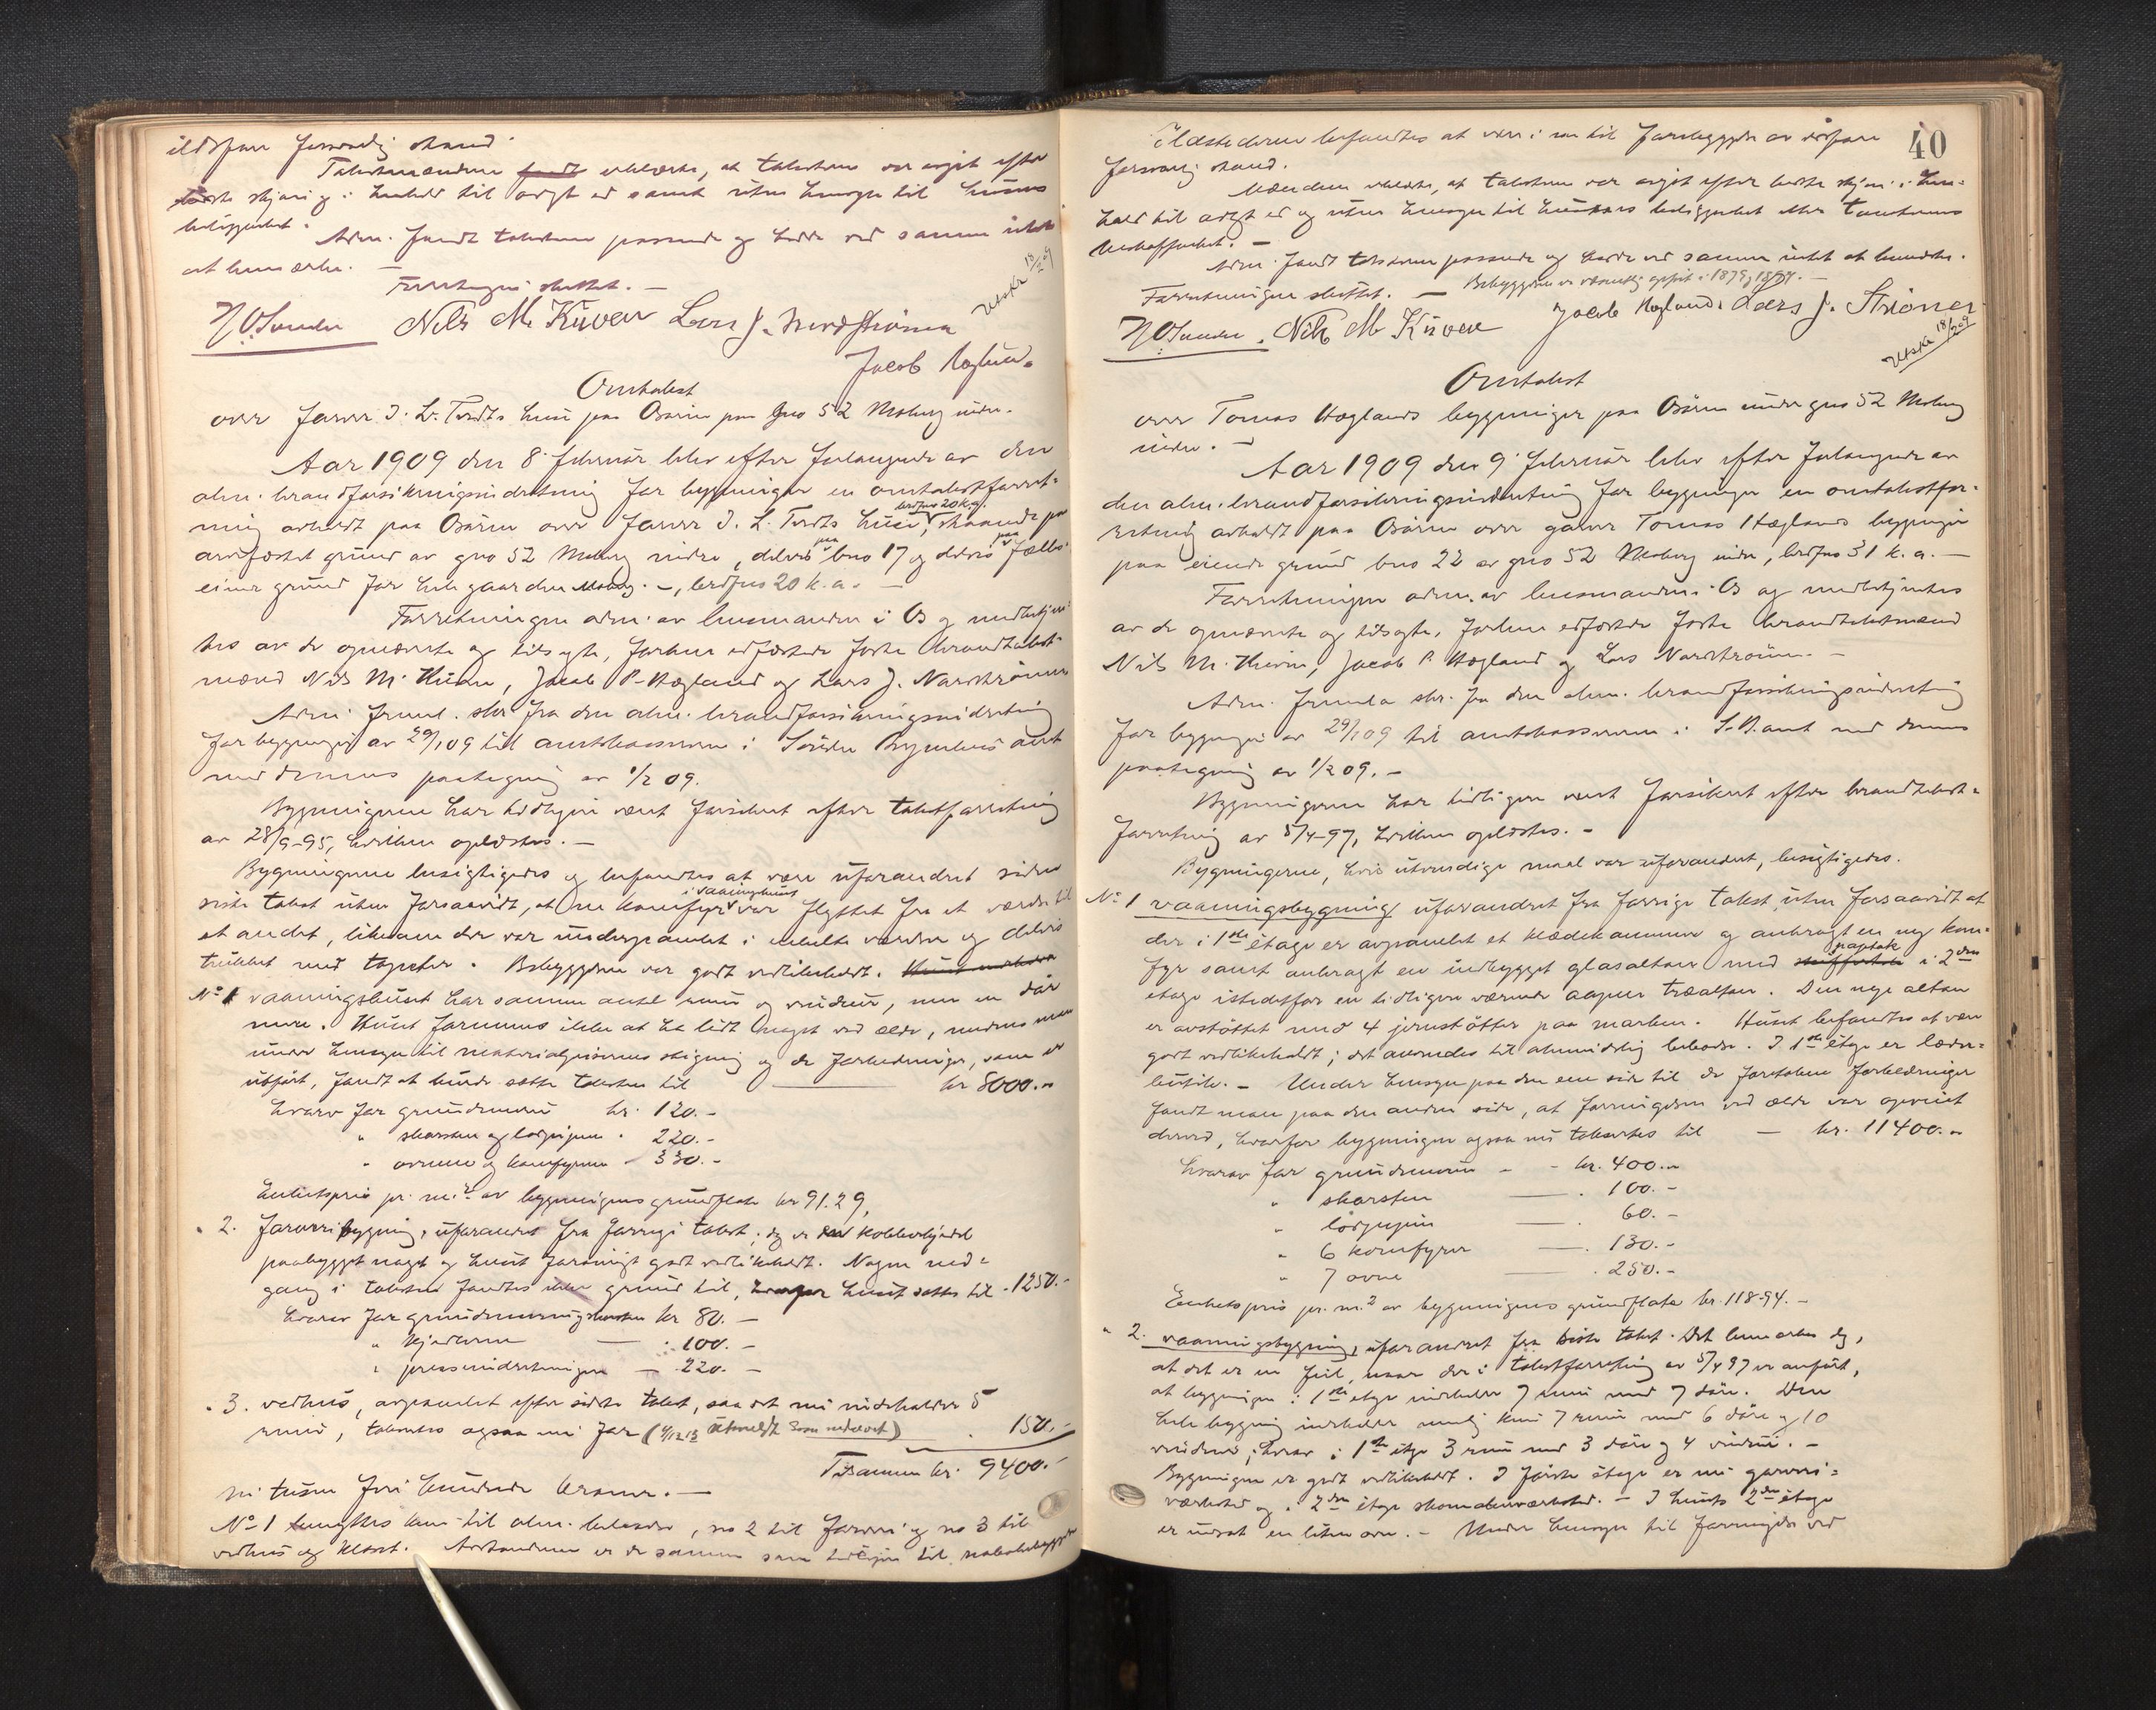 ildsfare forsvarlig stand.
Takstmændene fandt erklærte, at taksten var avgit efter
bedste skjøn og i henhold til avlagt ed samt uten hensyn til husenes
beliggenhet.
Adm. fandt taksten passende og hadde ved samme intet
at bemærke. —
Forretningen sluttet. —
N O Sundø Nils M. Kuven Lars J. Nordstrønen
Jacob Høgland.
Utskr 18/2 09
Omtakst
over farver J. L. Tvedts hus paa Osøren paa gno 52 Moberg nidre.
Aar 1909 den 8 februar blev efter forlangende av den
alm. brandforsikringsindretning for bygninger en omtakstforret-
ning avholdt paa Osøren over farver J. L. Tvedts huse, brdfno 20 k.a. staaende paa
avfæstet grund av gno 52 Moberg nidre, delvis paa bno 17 og delvis paa fælles
eiet grund for hele gaarden Moberg. —, brdfno 20 k. a. —
Forretningen adm. av lensmanden i Os og medbetjen-
tes av de opnævnte og tilsagte, forhen edfæstede faste brandtakst-
mænd Nils M. Kuven, Jacob P. Høgland og Lars J. Nordstrønen
Adm. freml. skr. fra den alm. brandforsikringsindretning
for bygninger av 29/1 09 til amtskassereren i Søndre Bergenhus amt
med dennes paategning av 1/2 09.
Bygningene har tidligere vært forsikret efter takstforretning
av 28/9-95, hvilken oplæstes. —
Bygningene besigtigedes og befandtes at være uforandret siden
siste takst uten forsaavidt, at en komfyr i vaaningshuset var flyttet fra et værelse til
et andet, likesom der var underpanelet i enkelte værelser og delvis
trukket med tapeter. Bebyggelsen var godt vedlikeholdt.
No 1 vaaningshuset har samme antal rum og vinduer, men en dør
mere. Huset formenes ikke at ha lidt noget ved ælde, medens man
under hensyn til materialprisernes stigning og de forbedringer, som er
utført, fandt at burde sætte taksten til — kr 8000.—
hvorav for grundmuren kr. 120.—
" skorsten og losjepipene " 220.—
" ovnene og komfyrene " 330.—
Enhetspris pr. m.² av bygningens grundflate kr 91.29,
" 2. farveribygning, uforandret fra forrige takst; dog er den kobberkjedel
paabygget noget og huset forøvrigt godt vedlikeholdt. Nogen ned-
gang i taksten fandtes ikke grund til, huset sættes til " 1250.—
hvorav for grundmuren og skorsten kr 80. —
" kjedlerne — " 100. —
" presseindretningen — " 220. —
" 3. vedhus, avpanelet efter sidste takst, saa det nu indeholder 5
rum, taksertes ogsaa nu for (4/12 13 utmeldt som nedrevet) " 150.—
Tilsammen kr. 9400.—
ni tusen fire hundrede kroner. —
No 1 benyttes kun til alm. beboelse, no 2 til farveri og no 3 til
vedhus og kloset. Avstandene er de samme som tidligere til nabobebyggelse
40
Ildstederne befandtes at være i en til forebyggelse av ildsfare
forsvarlig stand.
Mændene erklærte, at taksten var avgit efter bedste skjøn i hen-
hold til avlagt ed og uten hensyn til husenes beliggenhet eller tomtens
beskaffenhet. —
Adm. fandt taksten passende og hadde ved samme intet at bemærke.
Forretningen sluttet. — Bebyggelsen er væsentlig opført i 1879, 1894. —
N O Sundø. Nils M Kuven Jacob Høgland. Lars J. Strønen
Utskr 18/2 09
Omtakst
over Tomas Høglands bygninger paa Osøren under gno 52 Moberg
nidre. —
Aar 1909 den 9 februar blev efter forlangende av
den alm. brandforsikringsindretning for bygninger en omtakstfor-
retning avholdt paa Osøren over garver Tomas Høglands bygninger
paa eiende grund bno 22 av gno 52 Moberg nidre, brdfno 31 k. a. —
Forretningen adm. av lensmanden i Os og medbetjentes
av de opnævnte og tilsagte, forhen edfæstede faste brandtakstmænd
Nils M. Kuven, Jacob P. Høgland og Lars Nordstrønen. —
Adm. fremla skr. fra den alm. brandforsikringsindretning
for bygninger av 29/1 09 til amtskassereren i S. B. amt med dennes
paategning av 1/2 09. —
Bygningerne har tidligere vært forsikret efter brandtakst-
forretning av 5/4-97, hvilken oplæstes. —
Bygningerne, hvis utvendige maal var uforandret, besigtigedes.
No 1 vaaningsbygning uforandret fra forrige takst, uten forsaavidt at
der i 1ste etage er avpanelet et klædekammer og anbragt en ny kom-
fyr samt anbragt en indbygget glasaltan med paptak i 2den
etage istedetfor en tidligere værende aapen træaltan. Den nye altan
er avstøttet med 4 jernstøtter paa marken. Huset befandtes at være
godt vedlikeholdt; det anvendes til almindelig beboelse. I 1ste etage er læder-
butik. — Under hensyn paa den ene side til de foretakne forbedringer
fandt man paa den anden side, at forringelsen ved ælde var opveiet
derved, hvorfor bygningen ogsaa nu taksertes til — kr. 11400.—
hvorav for grundmuren — kr. 400.—
" skorsten — " 100.—
" losjepipen — " 60.—
" 6 komfyrer — " 130.—
" 7 ovne — " 250.—
Enhetspris pr. m.² av bygningens grundflate kr. 118.94. —
" 2. vaaningsbygning, uforandret fra siste takst. Det bemærkes dog,
at det er en feil, naar der i takstforretning av 5/4 97 er anført,
at bygningen i 1ste etage indeholder 7 rum med 7 døre. Den
hele bygning indeholder nemlig kun 7 rum med 6 døre og 10
vinduer; hvorav i 1ste etage 3 rum med 3 døre og 4 vinduer. —
Bygningen er godt vedlikeholdt. I første etage er nu garveri-
værksted og i 2den etage skomakerværksted. — I husets 2den etage
er indsat en liten ovn. — Under hensyn til forringelse ved